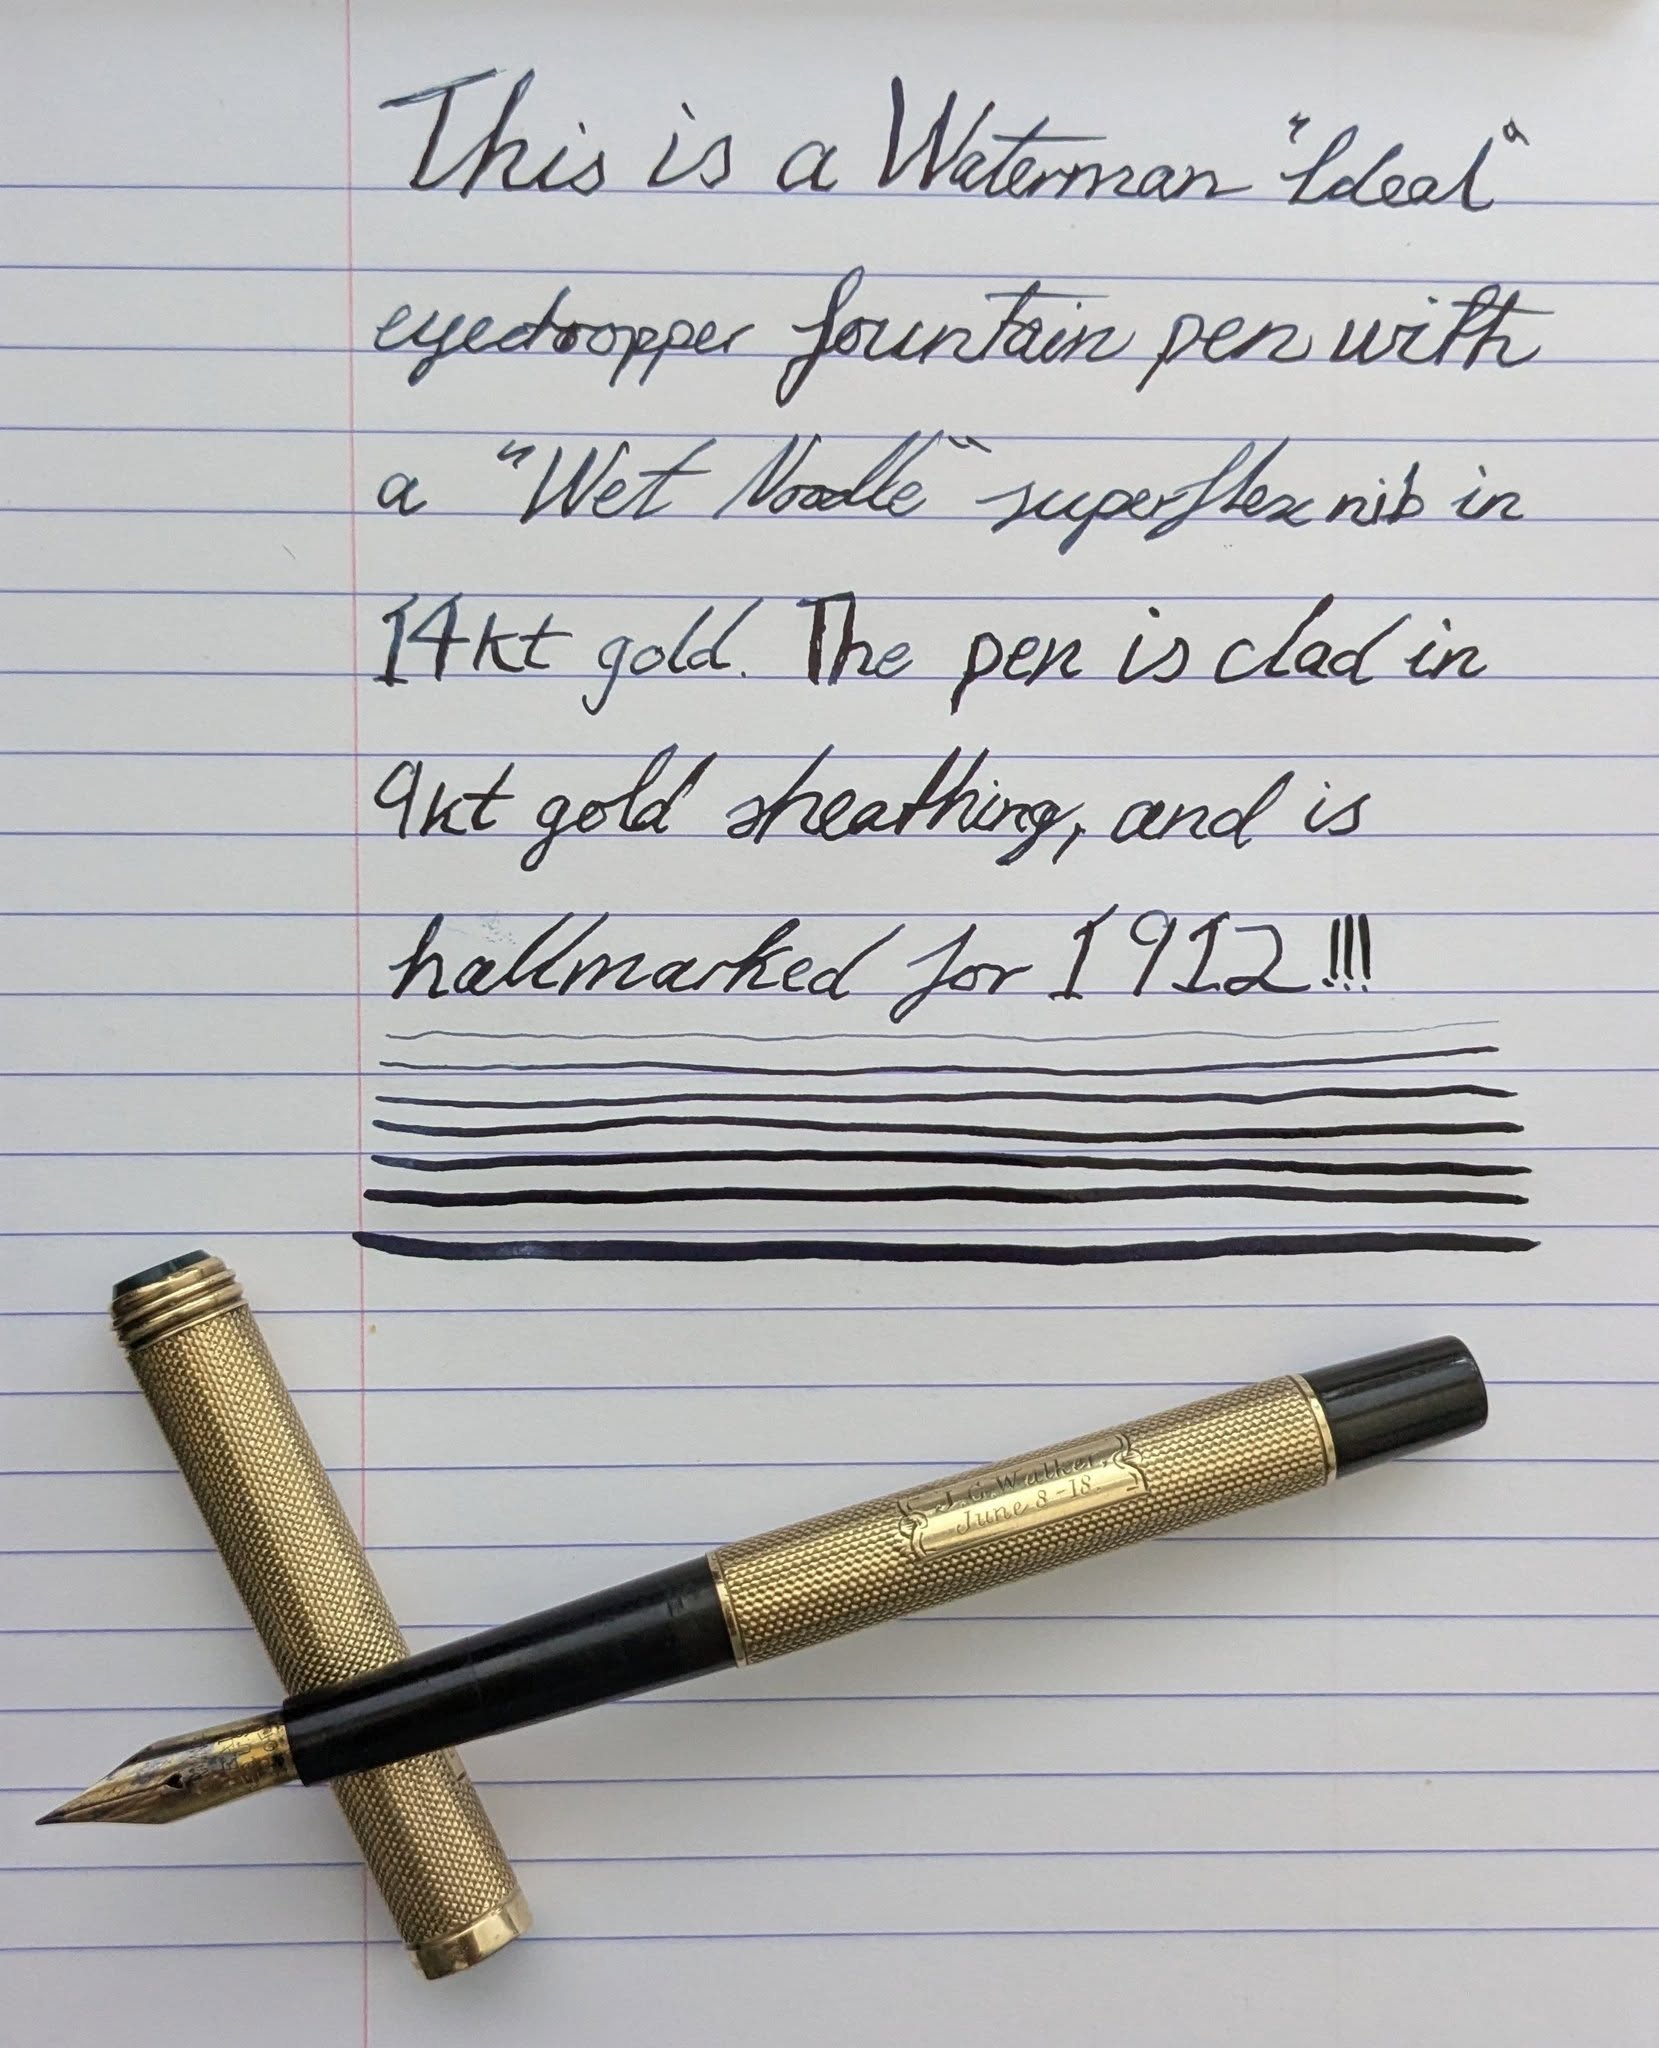 This is a Waterman "Ideal"
eyedropper fountain pen with
a "Wet Noodle" superflex nib in
14kt gold. The pen is clad in
9kt gold sheathing, and is
hallmarked for 1912!!!
J.G. Walker,
June 8-18.